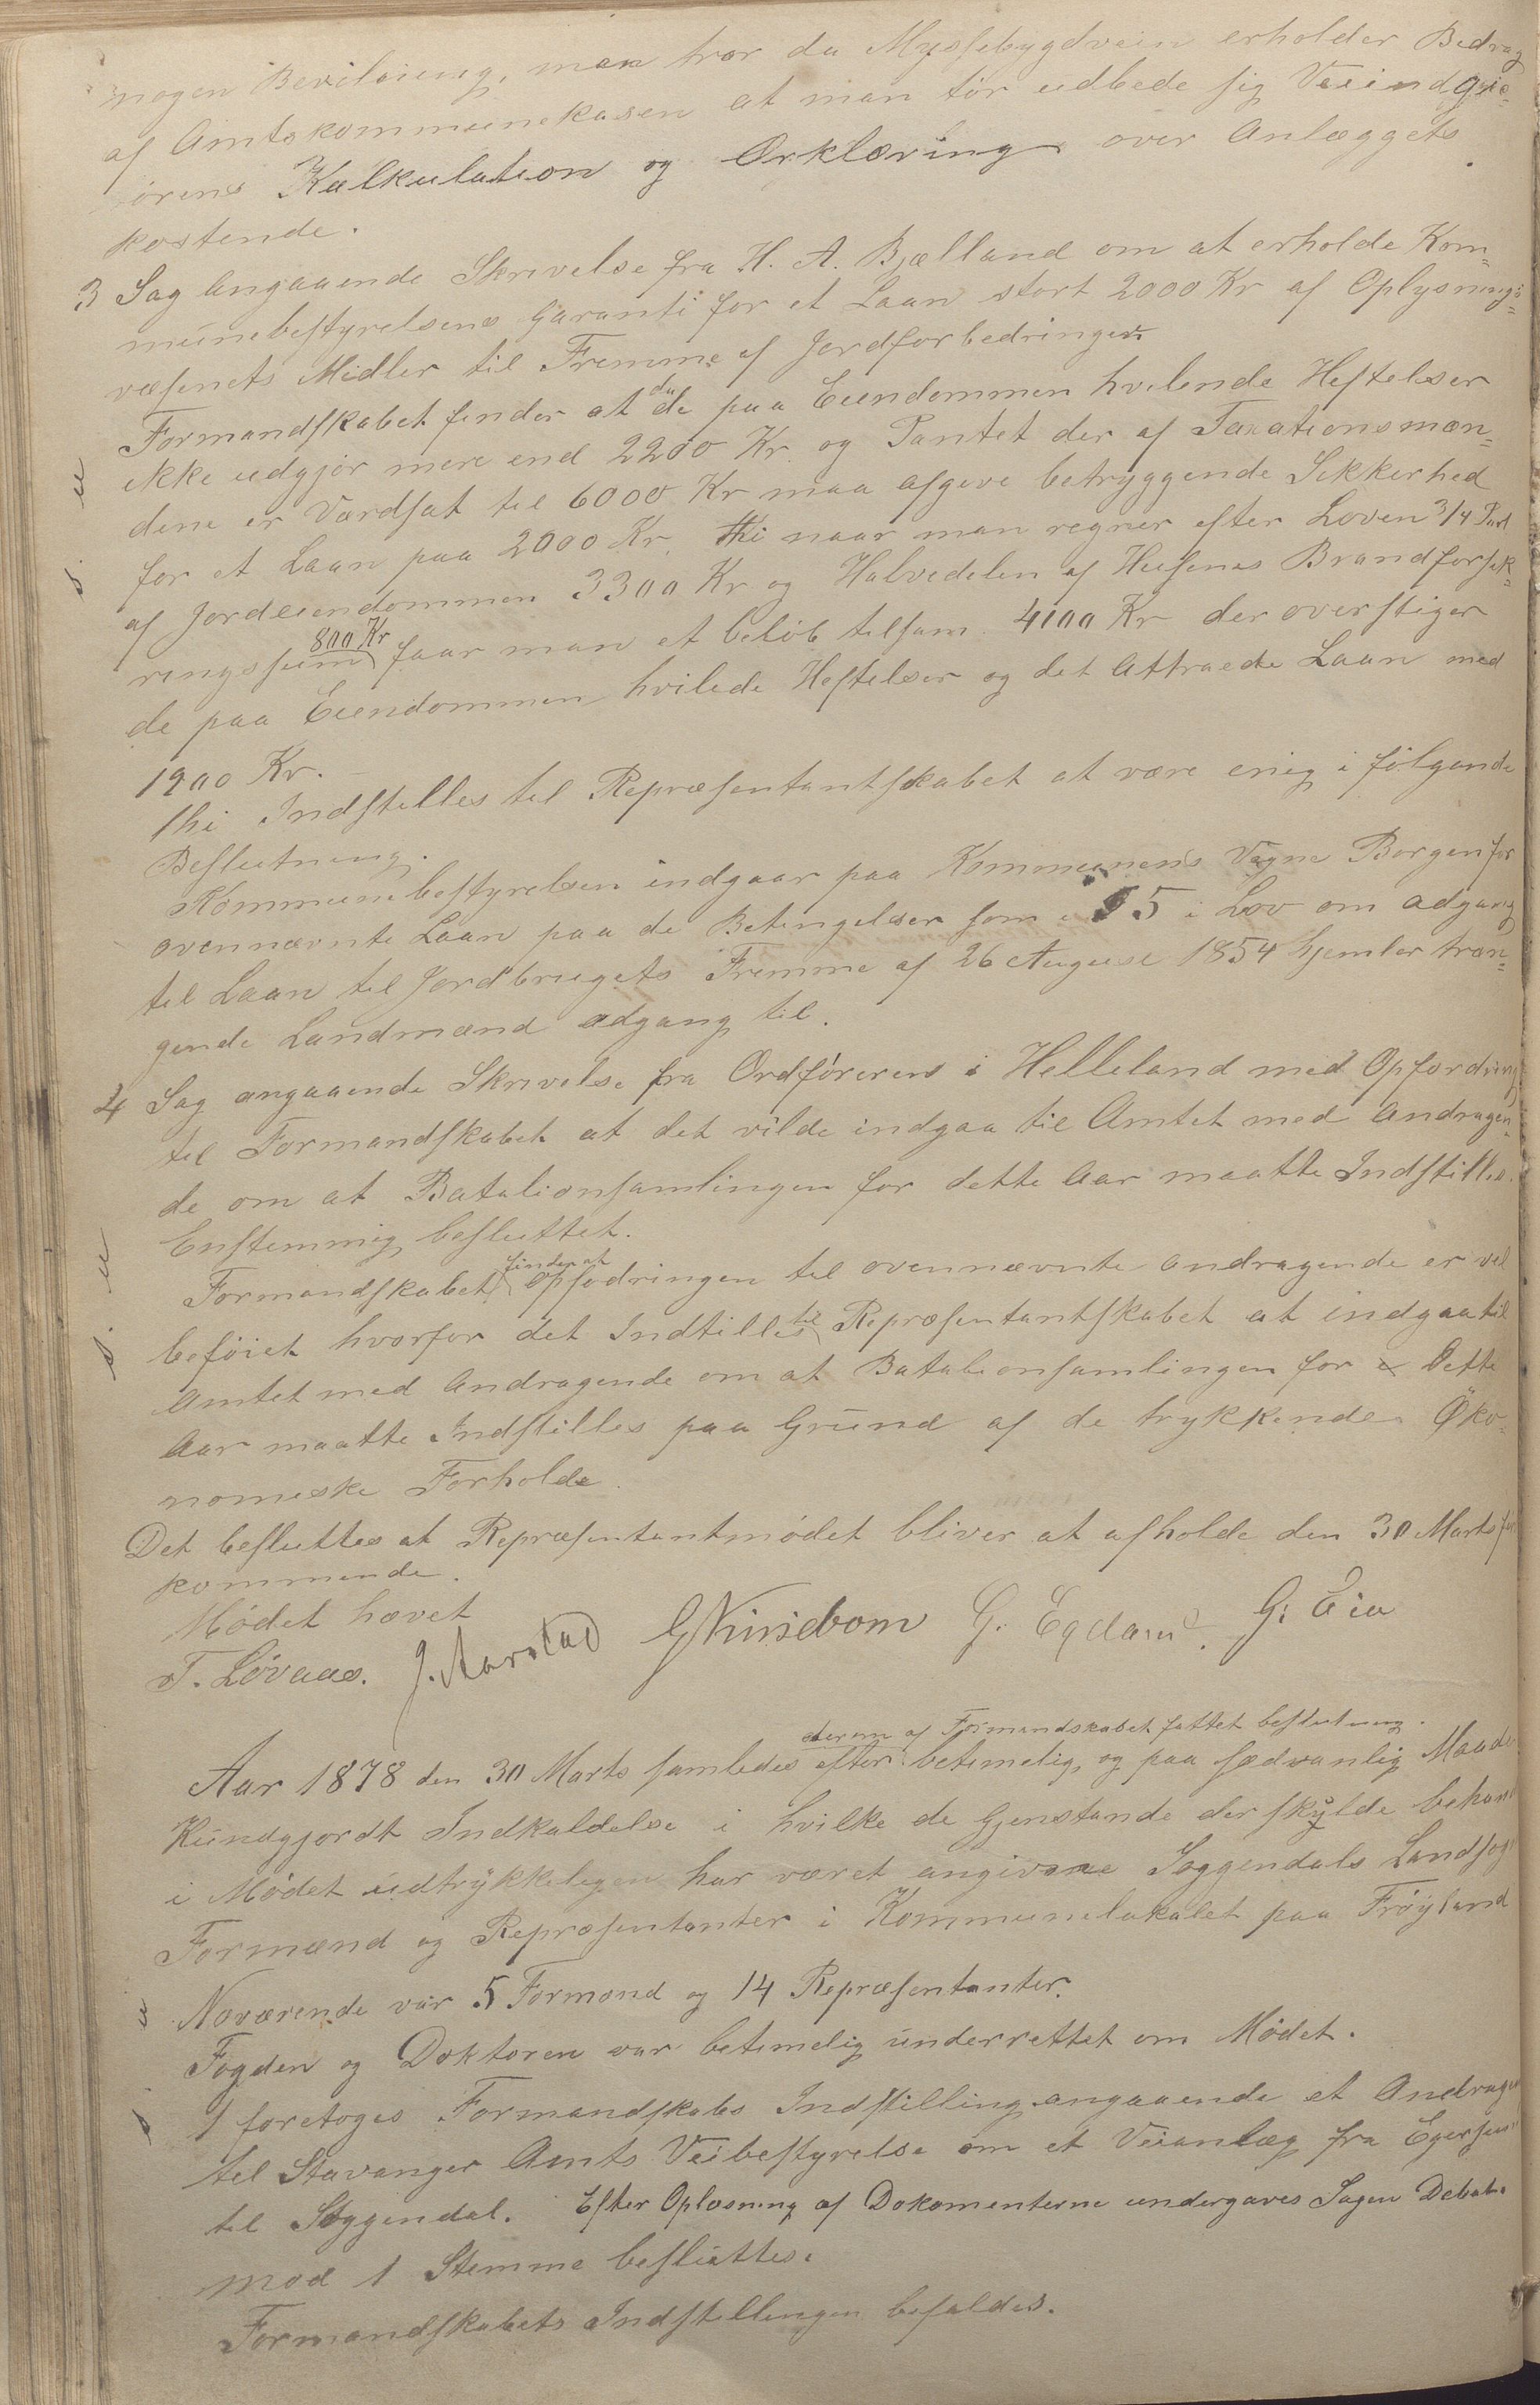 nogen Bevilgning, man tror da Myssebygdvein erholder Bidrag
af Amtskommunekasen at man tör udbede sig Veiindgie-
örens Kalkulation og Erklæring over Anlæggets
kostende.
3 Sag angaaende Skrivelse fra H. A. Bjelland om at erholde Kom-
munebestyrelsens Garanti for et Laan stort 2000 Kr af Oplysnings-
væsenets Midler til Fremme af Jordforbedringer
Formandskabet finder at da de paa Eiendommen hvilende Heftelser
ikke udgjör mere end 2200 Kr. og Pantet der af Taxationsmæn-
dene er Værdsat til 6000 Kr maa afgive betryggende Sikkerhed
for et Laan paa 2000 Kr. thi naar man regner efter Loven 3/4 Part
af Jordeiendommen 3300 Kr og Halvedelen af Husenes Brandforsik-
ringssum 800 Kr faar man et belöb tilsam. 4100 Kr der overstiger
de paa Eiendommen hvilede Heftelser og det Attraede Laan med
1900 Kr.
thi Indstilles til Repræsentantskabet at være enig i fölgende
Beslutning.
Kommunebestyrelsen indgaar paa Kommunens Vegne Borgen for
ovennævnte Laan paa de Betingelser som i § 5 i Lov om adgang
til Laan til Jordbrugets Fremme af 26 August 1854 hjemler træn-
gende Landmænd adgang til.
4 Sag angaaende Skrivelse fra Ordföreren i Helleland med Opfordring
til Formandskabet at det vilde indgaa til Amtet med Andragen-
de om at Batalionsamlingen for dette Aar maatte Indstilles.
Enstemmig besluttet.
Formandskabet finder at Opfodringen til ovennævnte andragende er vel
beföiet hvorfor det Indtilles til Repræsentantskabet at indgaa til
Amtet med Andragende om at Batalionsamlingen for Dette
Aar maatte Indstilles paa Grund af de trykkende Öko-
nomiske Forholde.
Det besluttes at Repræsentantmödet bliver at afholde den 30 Marts
kommende.
Mödet hævet
T. Lövaas. J. Aarstad G. Egdam. G. Eia
derom af Formandskabet fattet beslutning.
Aar 1878 den 30 Marts samledes efter betimelig og paa sædvanlig Maade
Kundgjordt Indkaldelse i hvilke de Gjenstande der skulde behan
i Mödet udtrykkeligen har været angivne Soggendals Landsogn
Formænd og Repræsentanter i Kommunelokalet paa Fröyland
Nærværende var 5 Formænd og 14 Repræsentanter.
Fogden og Doktoren var betimelig underrettet om Mödet.
1 foretoges Formandskabs Indstilling angaaende et Andrage
til Stavanger Amts Veibestyrelse om et Veianlæg fra Egersun
til Soggendal. Efter Oplæsning af Dokomenterne undergaves Sagen Debat.
mod 1 Stemme besluttes.
Formandskabets Indstillingen bifaldes.